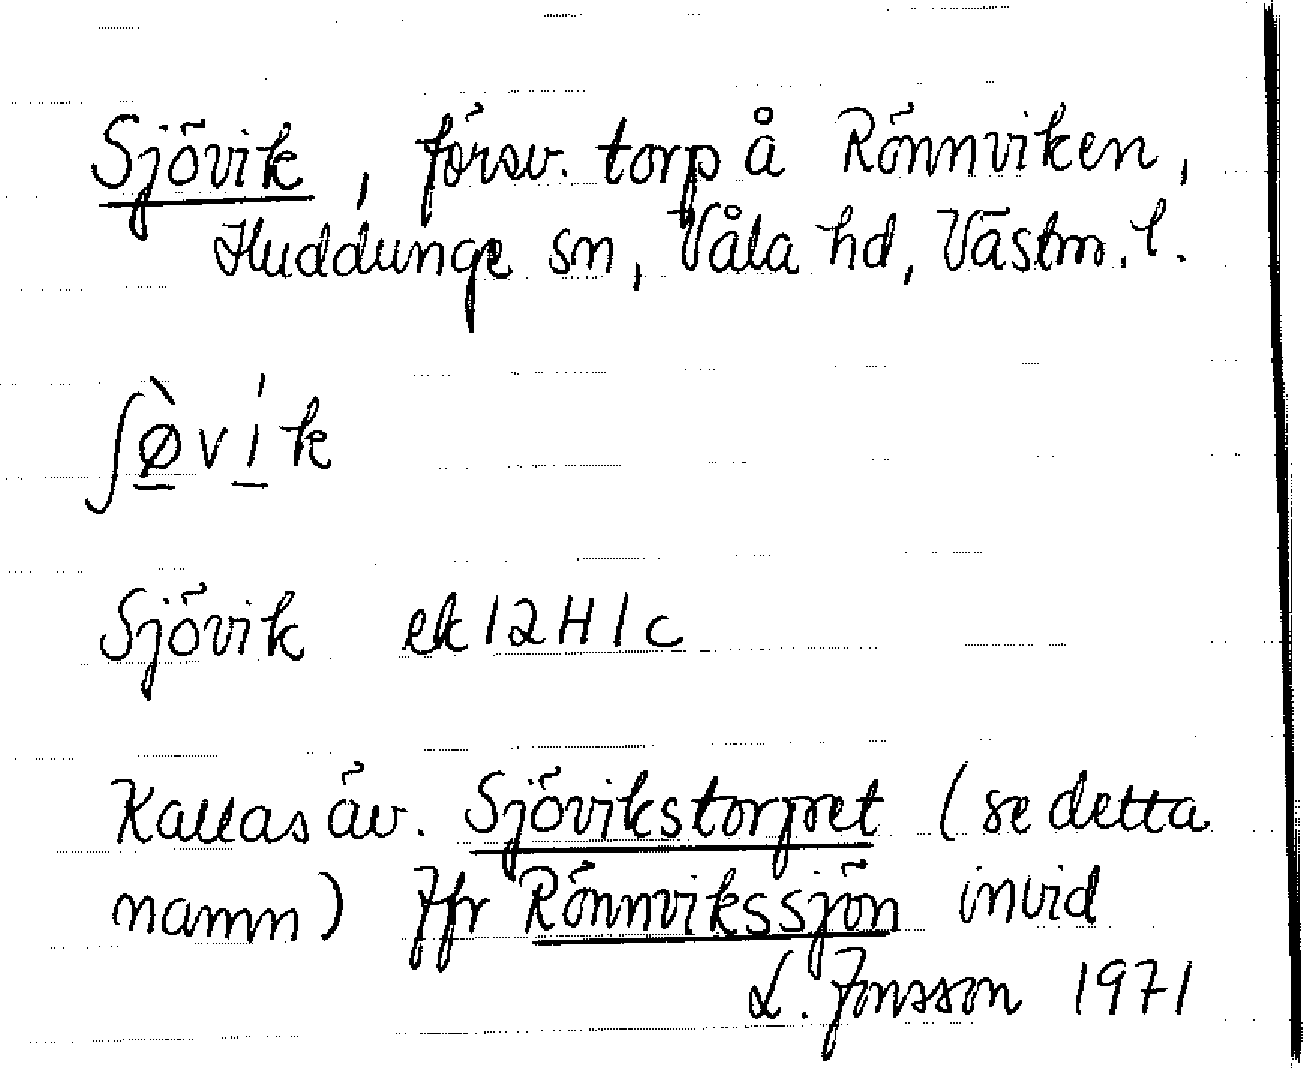 Sjövik, försv. torp å Rönnviken,
Huddunge sn, Våla hd, Västm. l.
ʃø̠̀ví̠k
Sjövik ek 12H1c
Kallas äv. Sjövikstorpet (se detta
namn) Jfr Rönnvikssjön invid
L. Jonsson 1971